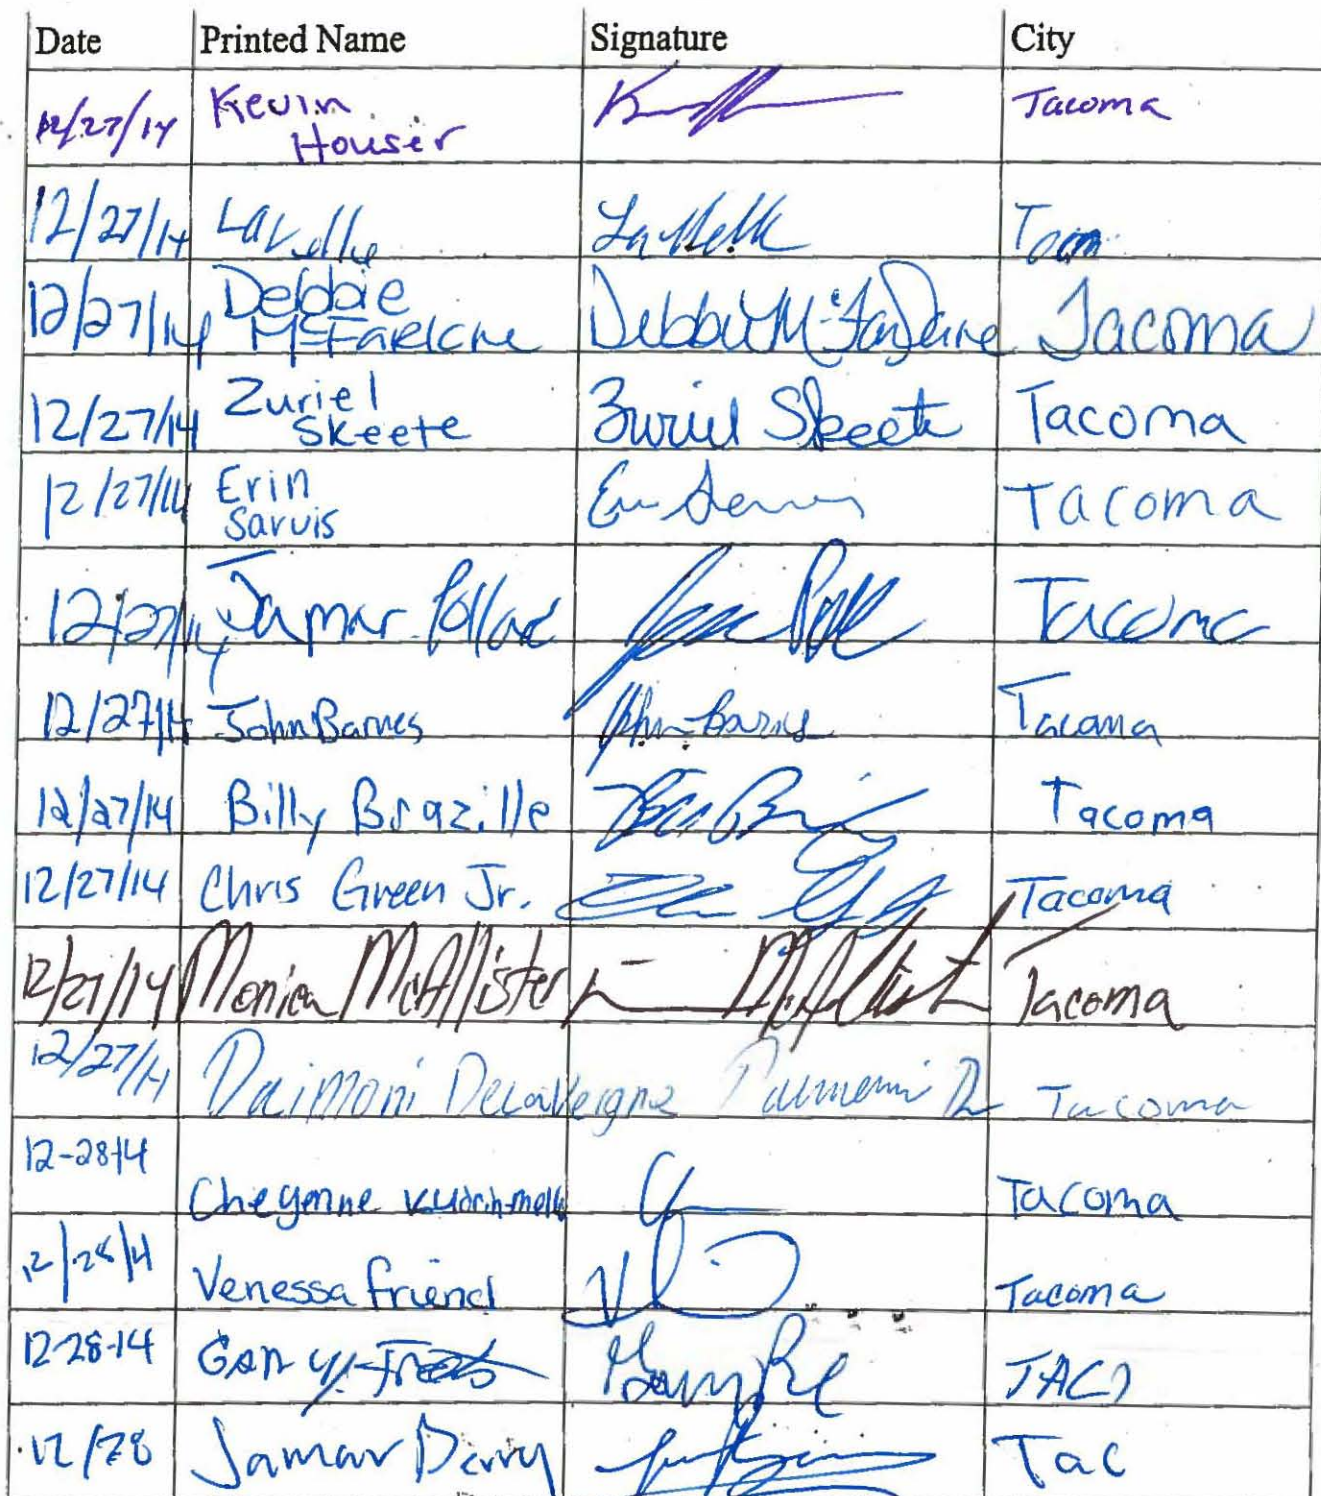 Date Printed Name Signature City
12/27/14 Kevin Houser Tacoma
12/27/14 Lavelle
12/27/14 Debbie McFarlane Debbie McFarlane Tacoma
12/27/14 Zuriel Skeete Zuriel Skeete Tacoma
12/27/14 Erin Sarvis Tacoma
12/27/14 Jamar Pollard Tacoma
12/27/14 John Barnes John Barnes Tacoma
12/27/14 Billy Brazille Tacoma
12/27/14 Chris Green Jr. Tacoma
12/27/14 Monica McAllister McAllister Tacoma
12/27/14 Daimoni Delavergne Tacoma
12-28-14 Cheyenne Tacoma
12/28/14 Venessa friend Tacoma
12-28-14 Gary Gary
12/28 Jamar Tac